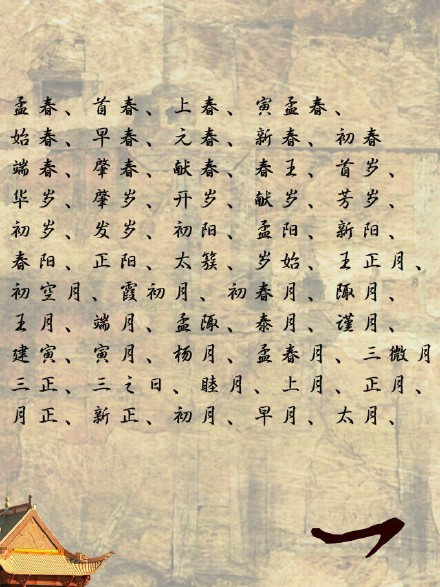 孟春、首春、上春、寅孟春、
始春、早春、元春、新春、初春
端春、肇春、献春、春王、首岁、
华岁、肇岁、开岁、献岁、芳岁、
初岁、发岁、初阳、孟阳、新阳、
春阳、正阳、太簇、岁始、王正月、
初空月、霞初月、初春月、陬月、
王月、端月、孟陬、泰月、谨月、
建寅、寅月、杨月、孟春月、三微月
三正、三之日、睦月、上月、正月、
月正、新正、初月、早月、太月、
一